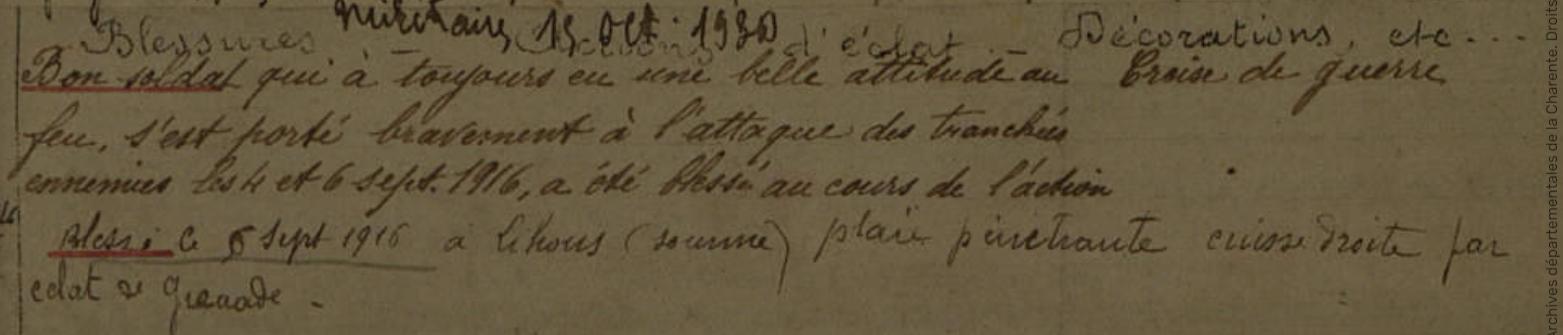 militaire, 15 Oct. 1930
Blessures Actions d'éclat. - Décorations, etc...
Bon soldat qui à toujours eu une belle attitude au Croix de guerre
feu, s'est porté bravement à l'attaque des tranchées
ennemies les 4 et 6 sept. 1916, a été blessé au cours de l'action
Blessé le 6 Sept 1916 à Lihons (Somme) plaie pénétrante cuisse droite par
eclat de grenade -
chives départementales de la Charente. Droits